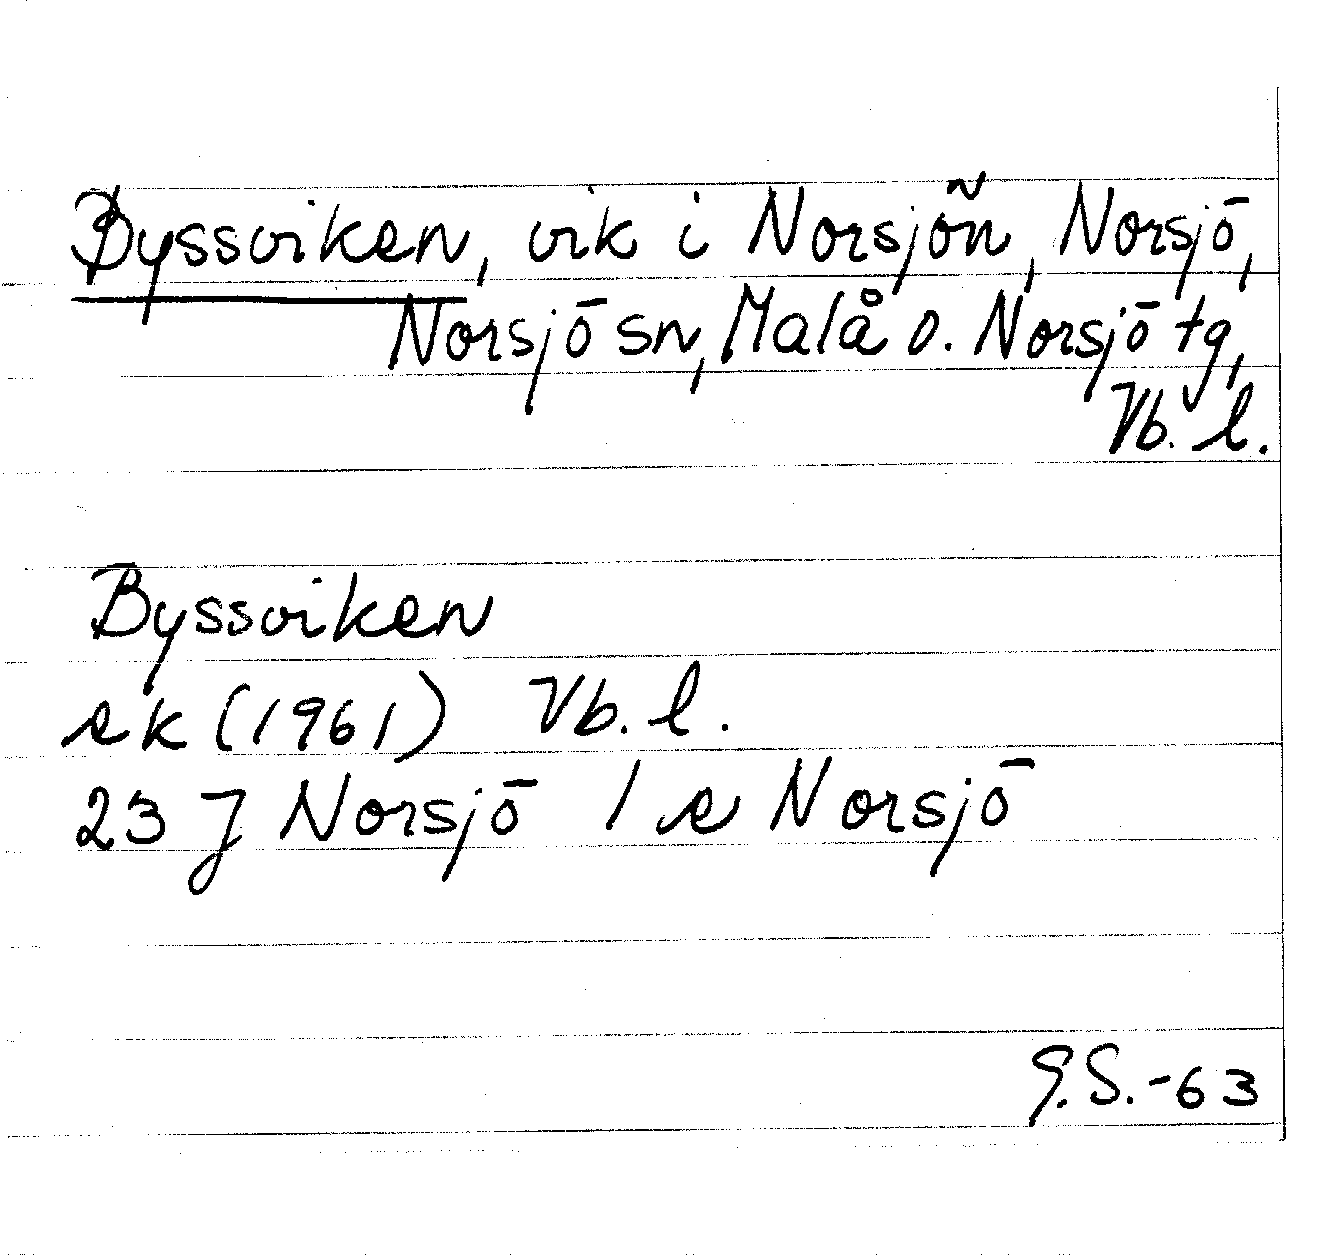 Byssviken, vik i Norsjön, Norsjö,
Norsjö sn, Malå o. Norsjö tg,
Vb. l.
Byssviken
ek (1961) Vb. l.
23 J Norsjö 1 e Norsjö
G.S.-63